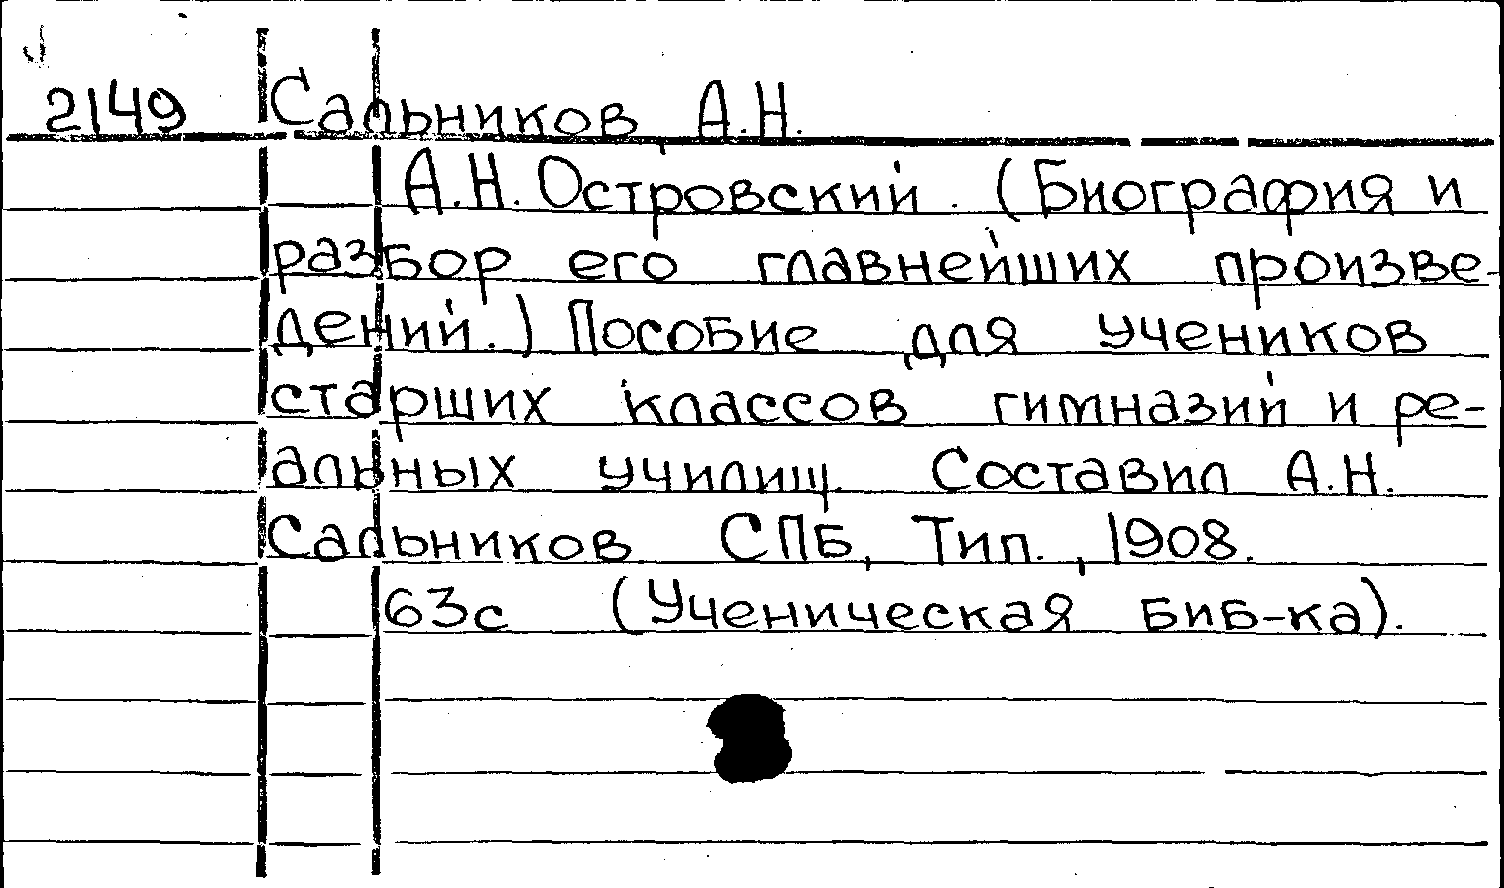 2149 Сальников А.Н.
А.Н. Островский. (Биография и
разбор его главнейших произве-
дений.) Пособие для учеников
старших классов гимназий и ре-
альных училищ. Составил А.Н.
Сальников СПБ, Тип., 1908.
63с (Ученическая биб-ка).